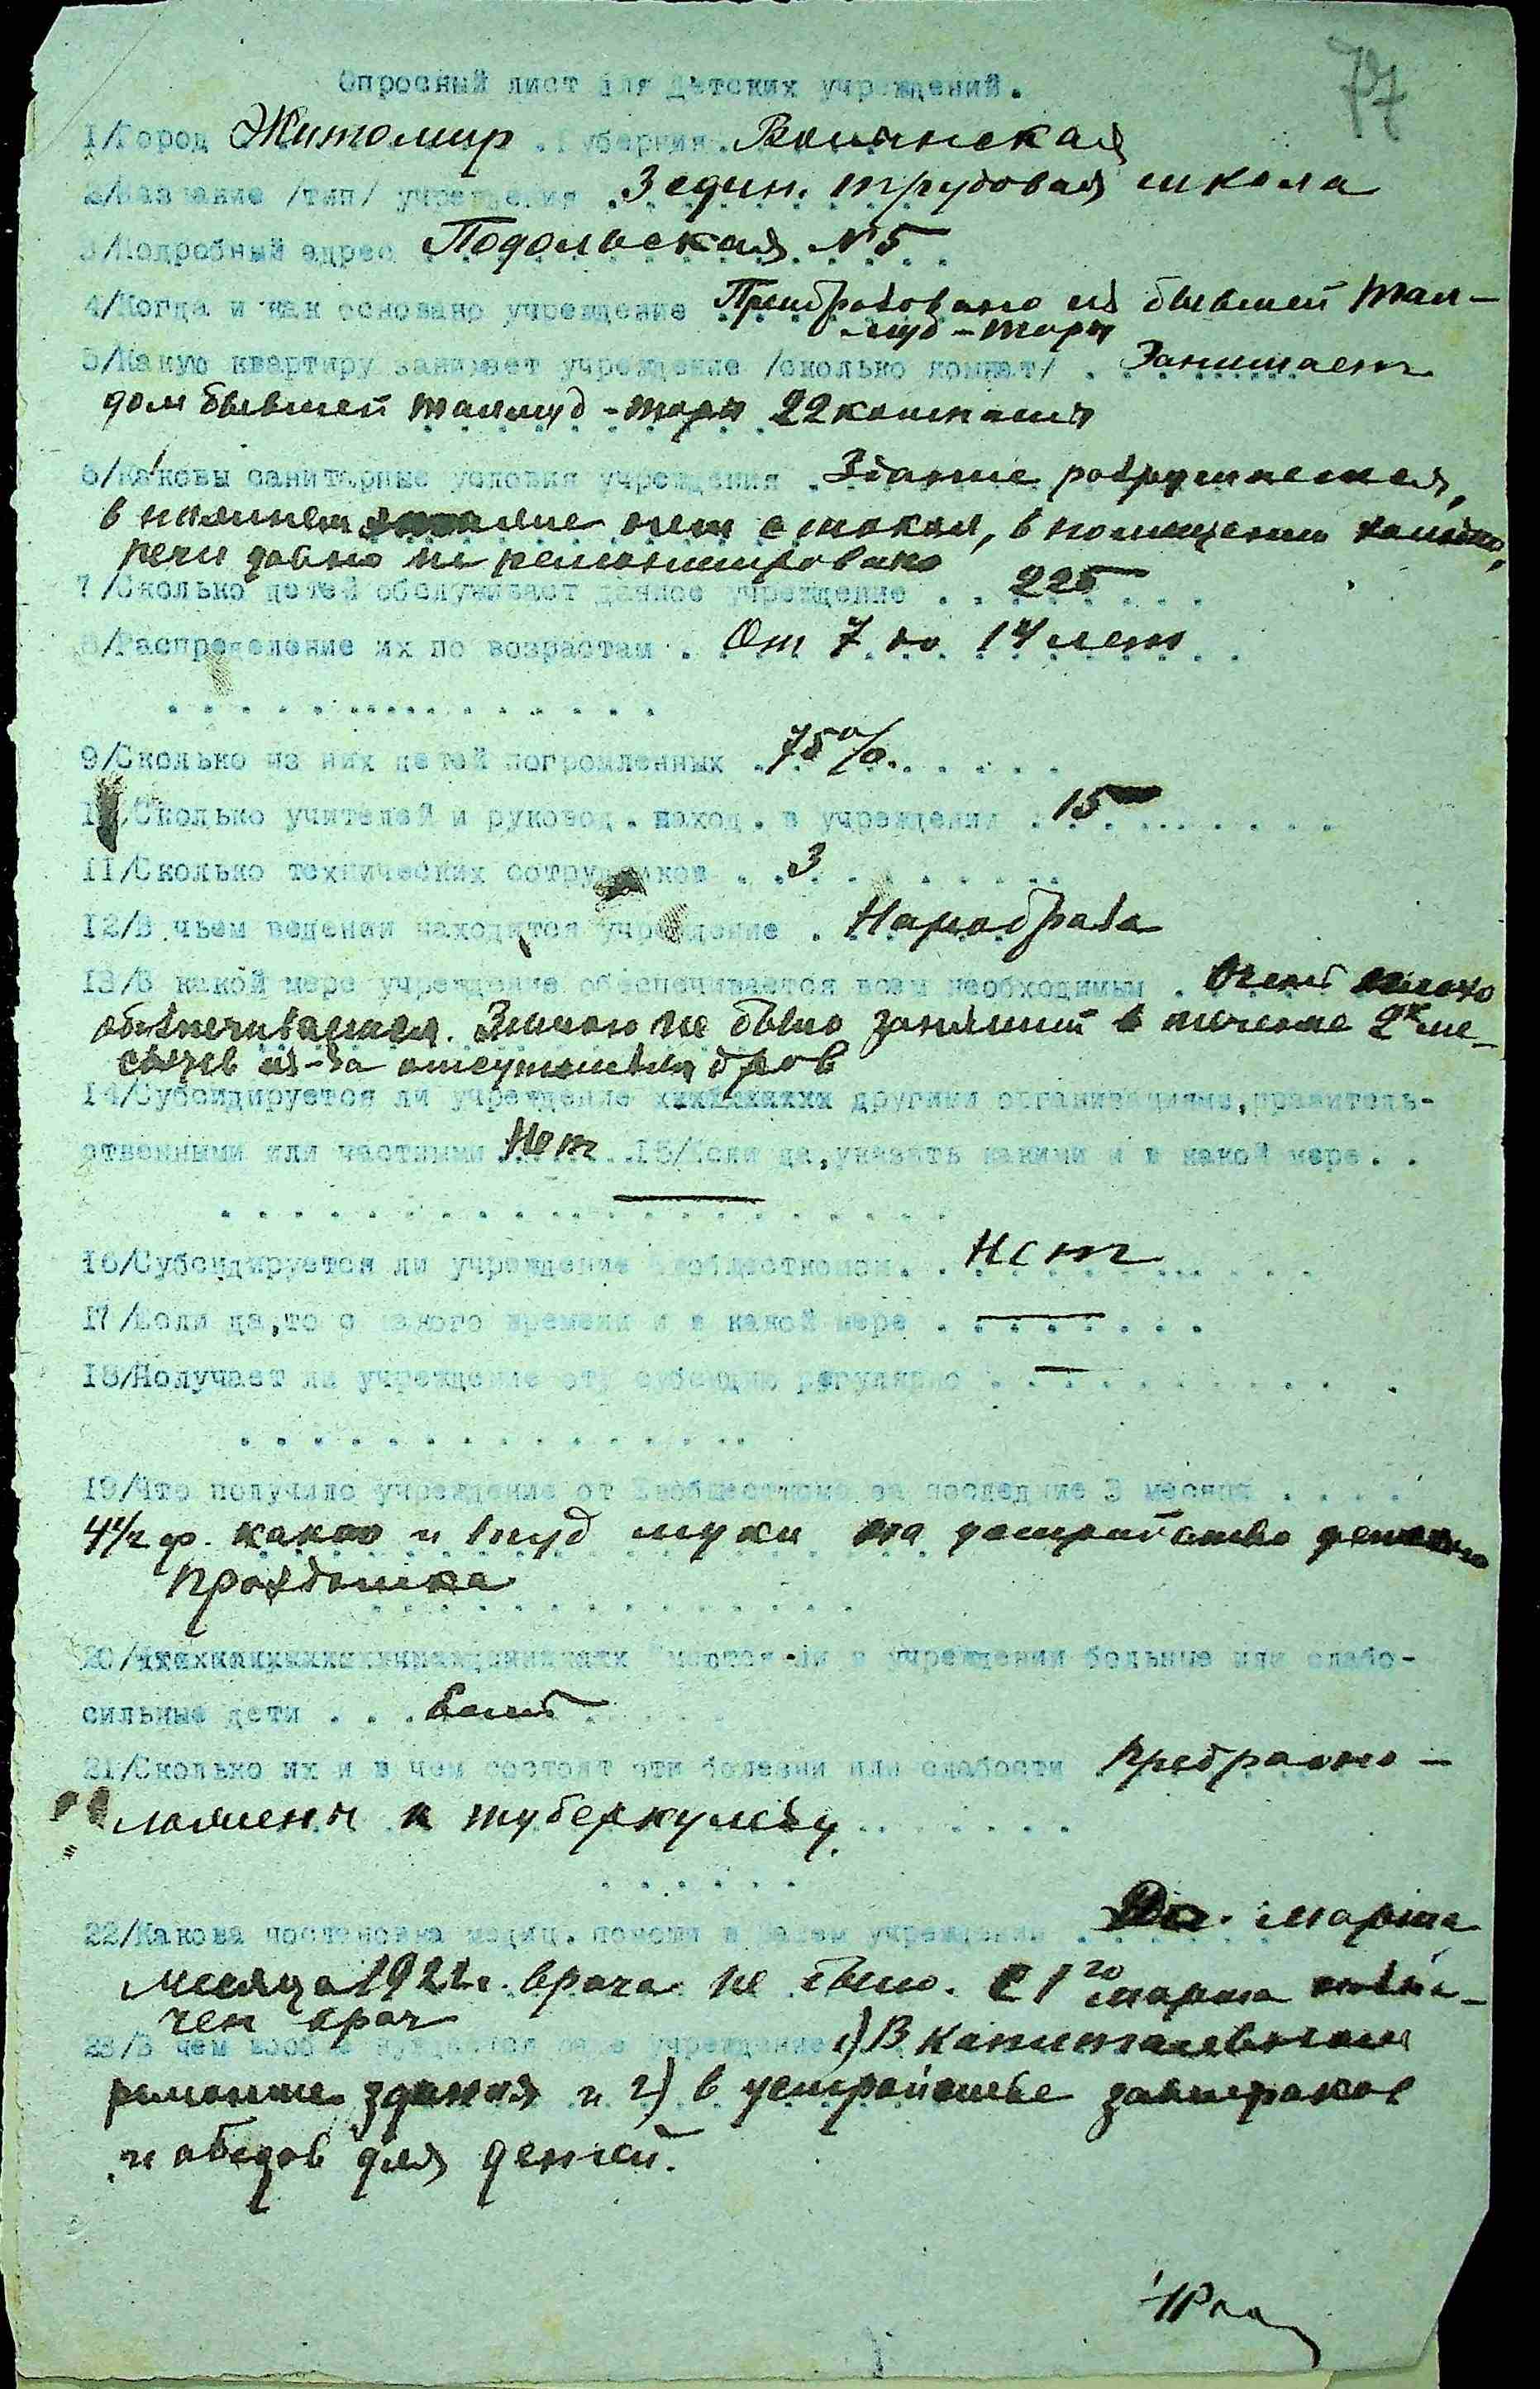 77
Опросный лист для Детских учреждений.
1/Город Житомир . Губерния . Волынская
2/Название /тип/ учреждения . 3 един. трудовая школа
3/Подробный адрес Подольская № 5
4/Когда и как основано учреждение Преобразовано из бывшей Тал-
муд-торы
5/Какую квартиру занимает учреждение /сколько комнат/ . Занимает
дом бывшей талмуд-торы 22 комнаты
6/Каковы санитарные условия учреждения . Здание разрушается,
в нет стекол, в помещении
печи давно не ремонтировано
7/Сколько детей обслуживает данное учреждение . 225
8/Распределение их по возрастам . От 7 до 14 лет
9/Сколько из них детей погромленных . 75%.
10/Сколько учителей и руковод. наход. в учреждении . 15
11/Сколько технических сотрудников . 3
12/В чьем ведении находится учреждение . Наробраза
13/В какой мере учреждение обеспечивается всем необходимым . Очень плохо
обеспечивается. Зимою не было занятий в течение 2х ме-
сяцев из-за отсутствия дров
14/Субсидируется ли учреждение другими организациями, правитель-
ственными или частными Нет 15/Если да, указать какими и в какой мере . .
16/Субсидируется ли учреждение Евобщесткомом . Нет
17/Если да, то с какого времени и в какой мере . —
18/Получает ли учреждение эту субсидию регулярно . —
19/Что получило учреждение от Евобщесткома за последние 3 месяца . . . .
4½ ф. какао и 1 пуд муки на устройство детского
праздника
20/ Имеются ли в учреждении больные или слабо-
сильные дети . . . Есть
21/Сколько их и в чем состоят эти болезни или слабости Предраспо-
ложены к туберкулезу.
22/Какова постановка медиц. помощи в Вашем учреждении . До марта
месяца 1922 г. врача не было. С 1го марта назна-
чен врач
23/В чем вообще нуждается Ваше учреждение 1) В капитальном
ремонте здания и 2) в устройстве завтраков
и обедов для детей.